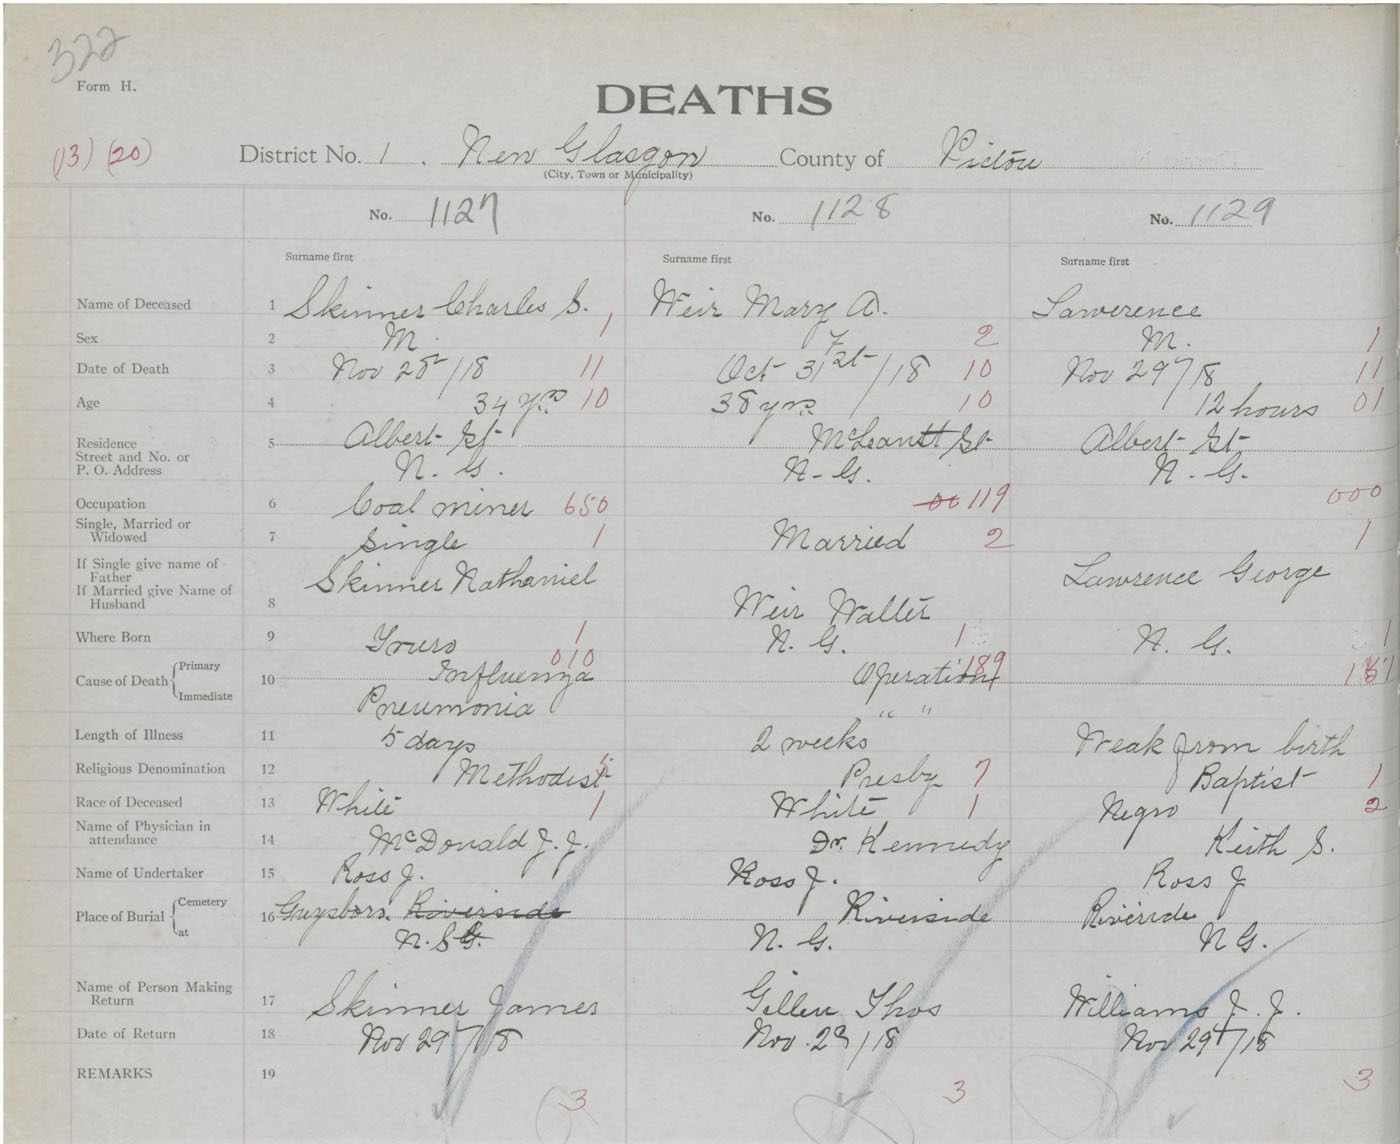 322
Form H.
DEATHS
(13) (20)
District No. 1. New Glasgow County of Pictou
(City, Town or Municipality)
No. 1127 No. 1128 No. 1129
Surname first Surname first Surname first
Name of Deceased 1 Skinner Charles S. Weir Mary A. Lawerence
Sex 2 M. 1 F 2 M. 1
Date of Death 3 Nov 28th/18 11 Oct 31st/18 10 Nov 29th/18 11
Age 4 34 yrs 10 38 yrs 10 12 hours 01
Residence 5 Albert St McLean St Albert St
Street and No. or
P. O. Address N. G. N-G. N-G.
Occupation 6 Coal miner 650 00 119 000
Single, Married or
Widowed 7 Single 1 Married 2 1
If Single give name of
Father Skinner Nathaniel Lawrence George
If Married give Name of
Husband 8 Weir Walter
Where Born 9 Truro 1 N. G. 1 N. G. 1
Cause of Death Primary 10 Influenza 010 Operation 189 151
Immediate Pneumonia " "
Length of Illness 11 5 days 2 weeks Weak from birth
Religious Denomination 12 Methodist Presby 7 Baptist 1
Race of Deceased 13 White 1 White 1 Negro 2
Name of Physician in
attendance 14 McDonald J. J. Dr. Kennedy Keith S.
Name of Undertaker 15 Ross J. Ross J. Ross J
Place of Burial Cemetery 16 Guysboro. Riverside Riverside Riverside
at N. S. G. N. G. N G.
Name of Person Making
Return 17 Skinner James Gillen Thos Williams J. J.
Date of Return 18 Nov 29th/18 Nov. 29/18 Nov 29th/18
REMARKS 19
3 3 3